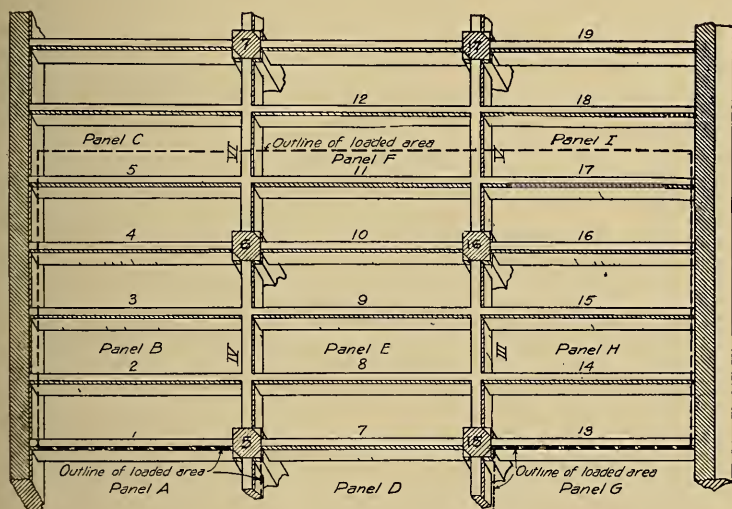 19
7 17
12 18
Panel C VI Outline of loaded area V Panel I
Panel F
5 11 17
4 6 10 16 16
3 9 15
Panel B IV Panel E III Panel H
2 8 14
1 5 7 15 13
Outline of loaded area Outline of loaded area
Panel A Panel D Panel G